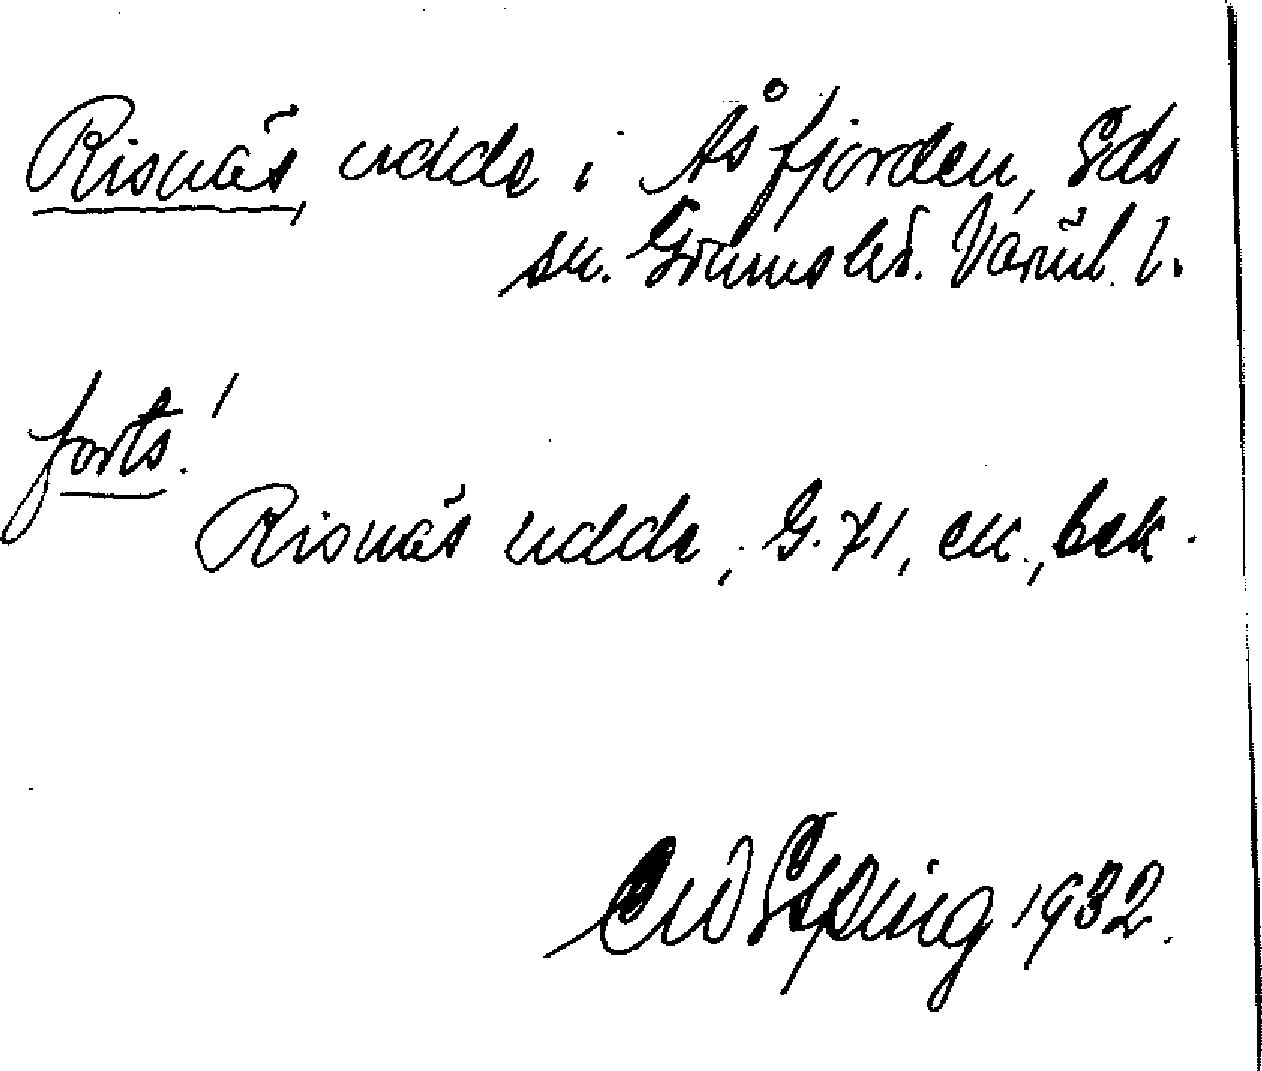 Risnäs, udde i Åsfjorden, Eds
sn. Grums hd. Värml. l.
forts!
Risnäs udde, G. 71, ek., bek.
1932.